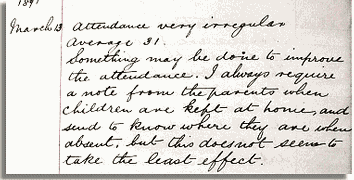 1891
March 13 Attendance very irregular
Average 31.
Something may be done to improve
the attendance. I always require
a note from the parents when
children are kept at home, and
send to know where they are when
absent, but this does not seem to
take the least effect.